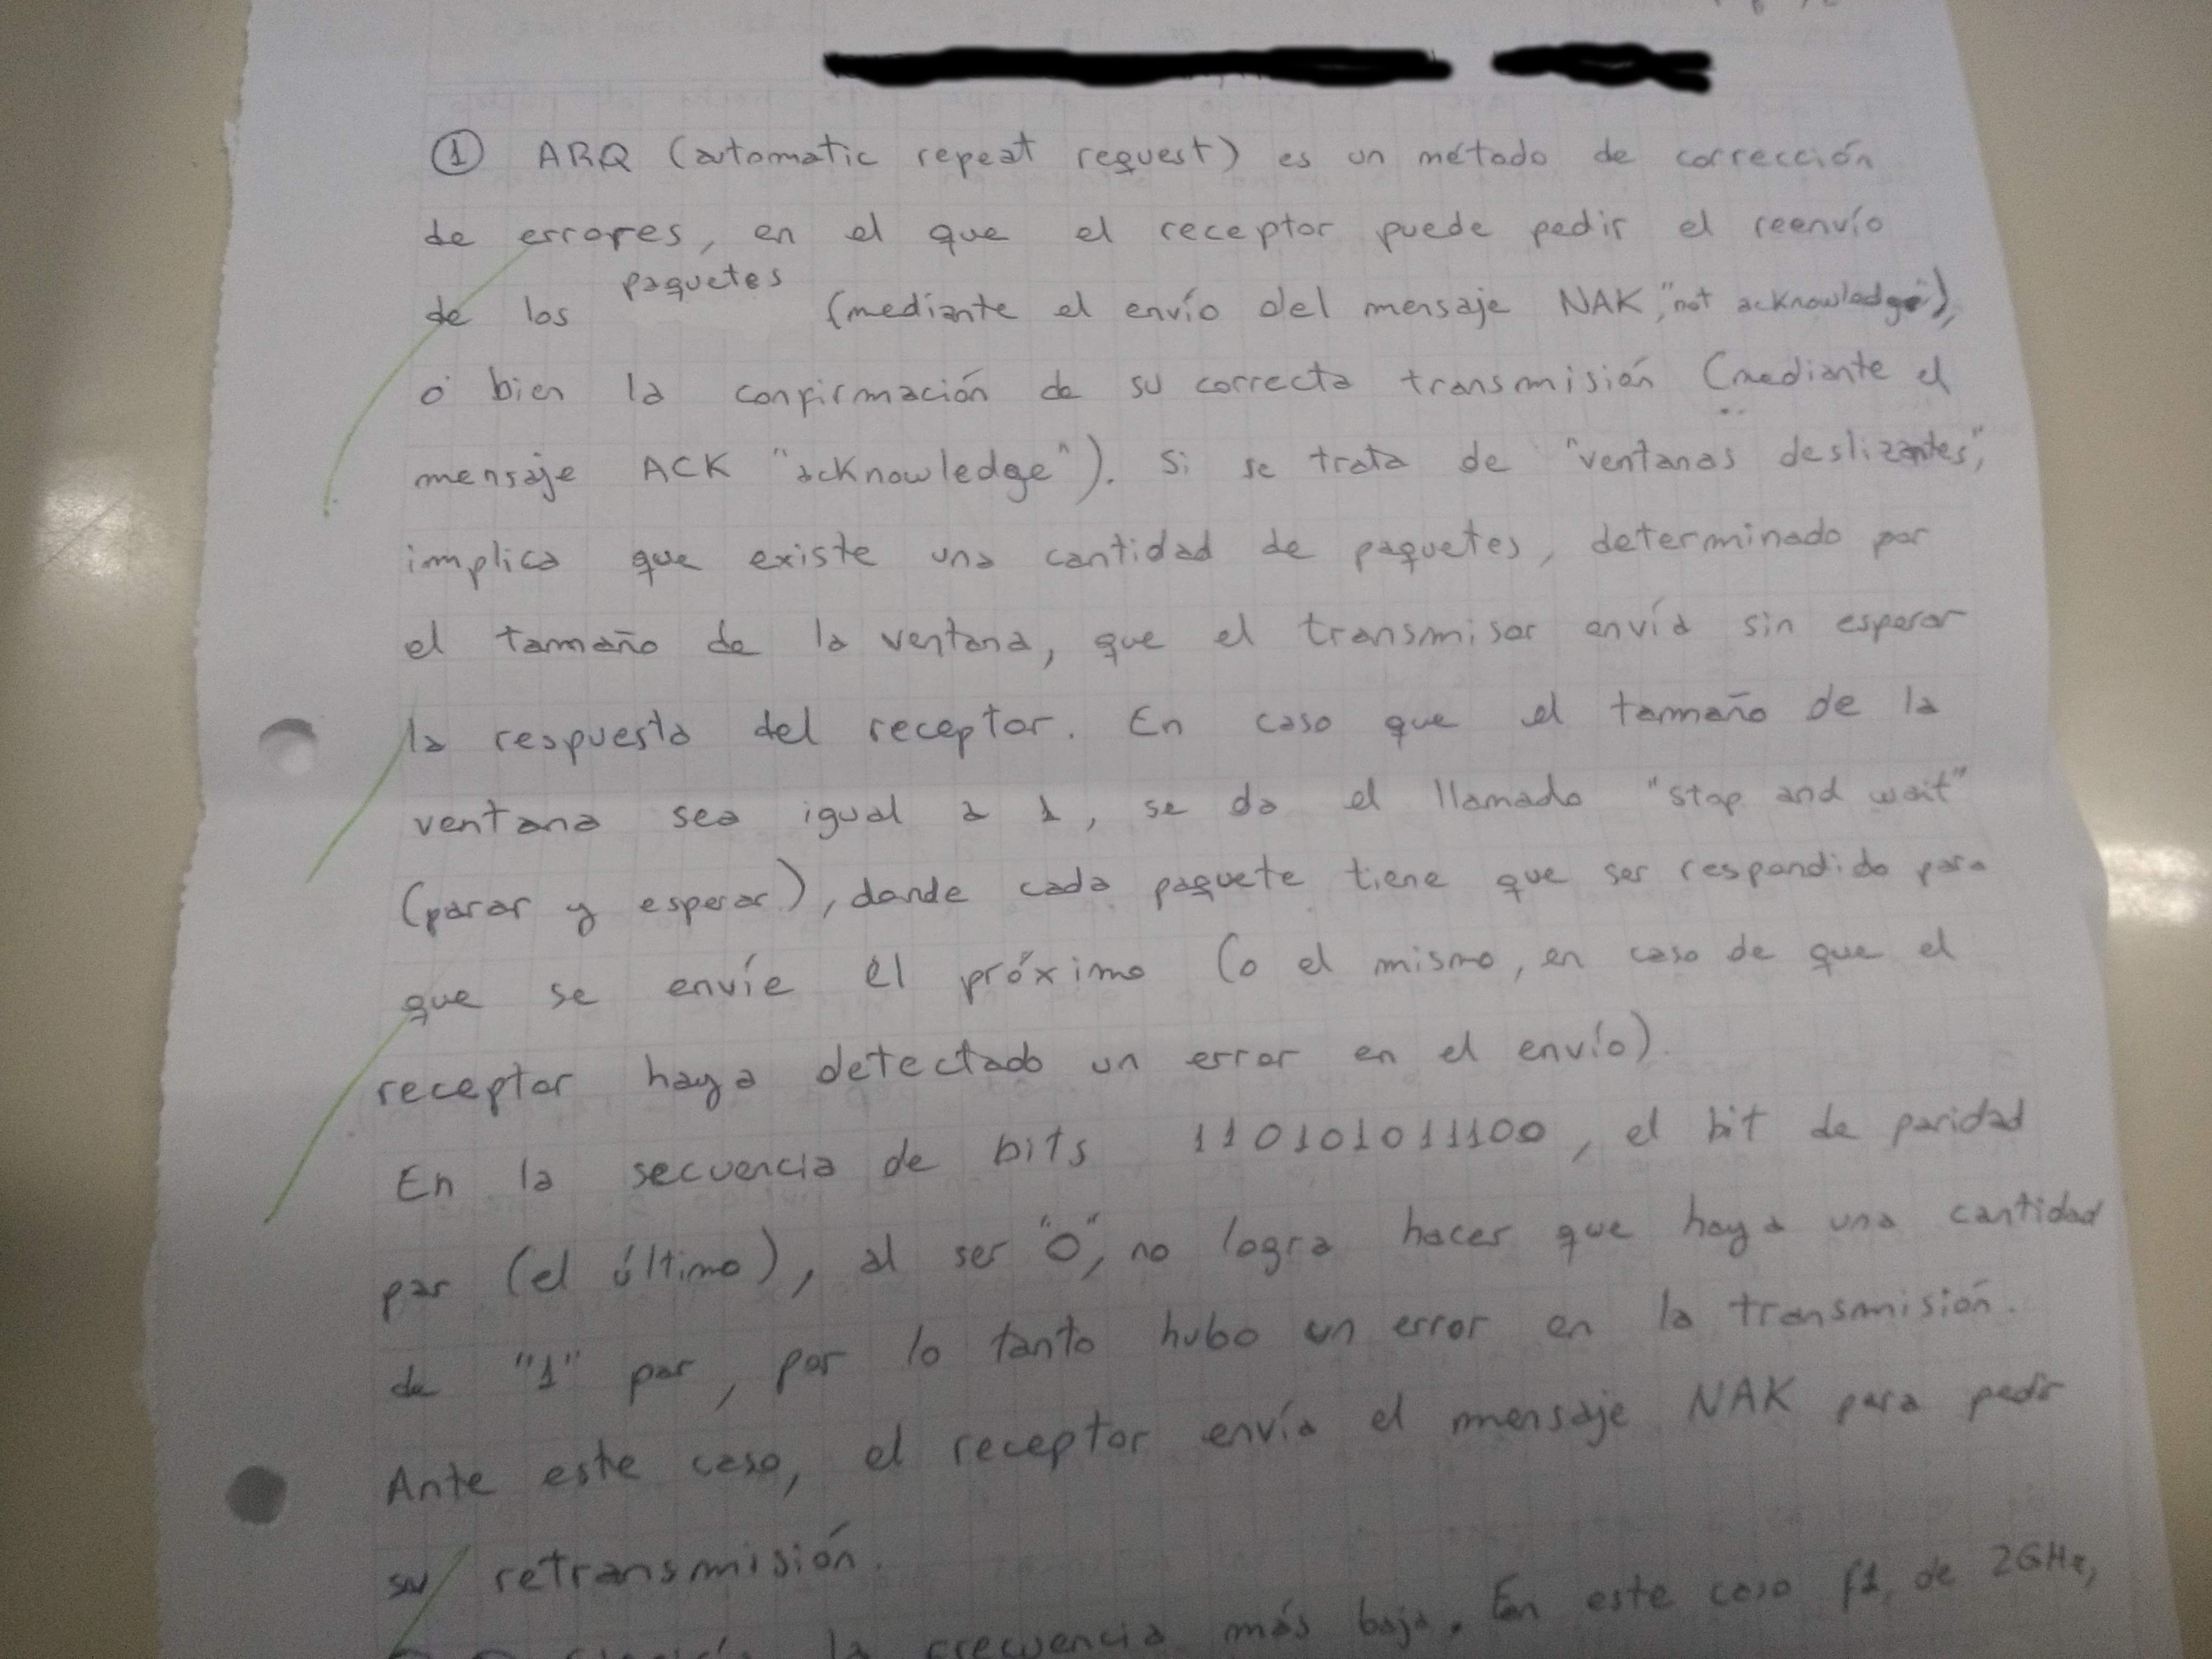 ① ARQ (automatic repeat request) es un método de corrección
de errores, en el que el receptor puede pedir el reenvío
de los paquetes (mediante el envío del mensaje NAK, "not acknowledge"),
o bien la confirmación de su correcta transmisión (mediante el
mensaje ACK "acknowledge"). Si se trata de "ventanas deslizantes",
implica que existe una cantidad de paquetes, determinado por
el tamaño de la ventana, que el transmisor envía sin esperar
la respuesta del receptor. En caso que el tamaño de la
ventana sea igual a 1, se da el llamado "stop and wait"
(parar y esperar), donde cada paquete tiene que ser respondido para
que se envíe el próximo (o el mismo, en caso de que el
receptor haya detectado un error en el envío).
En la secuencia de bits 110101011100, el bit de paridad
par (el último), al ser "0", no logra hacer que haya una cantidad
de "1" par, por lo tanto hubo un error en la transmisión.
Ante este caso, el receptor envía el mensaje NAK para pedir
su retransmisión.
la frecuencia más baja. En este caso f1, de 2GHz,